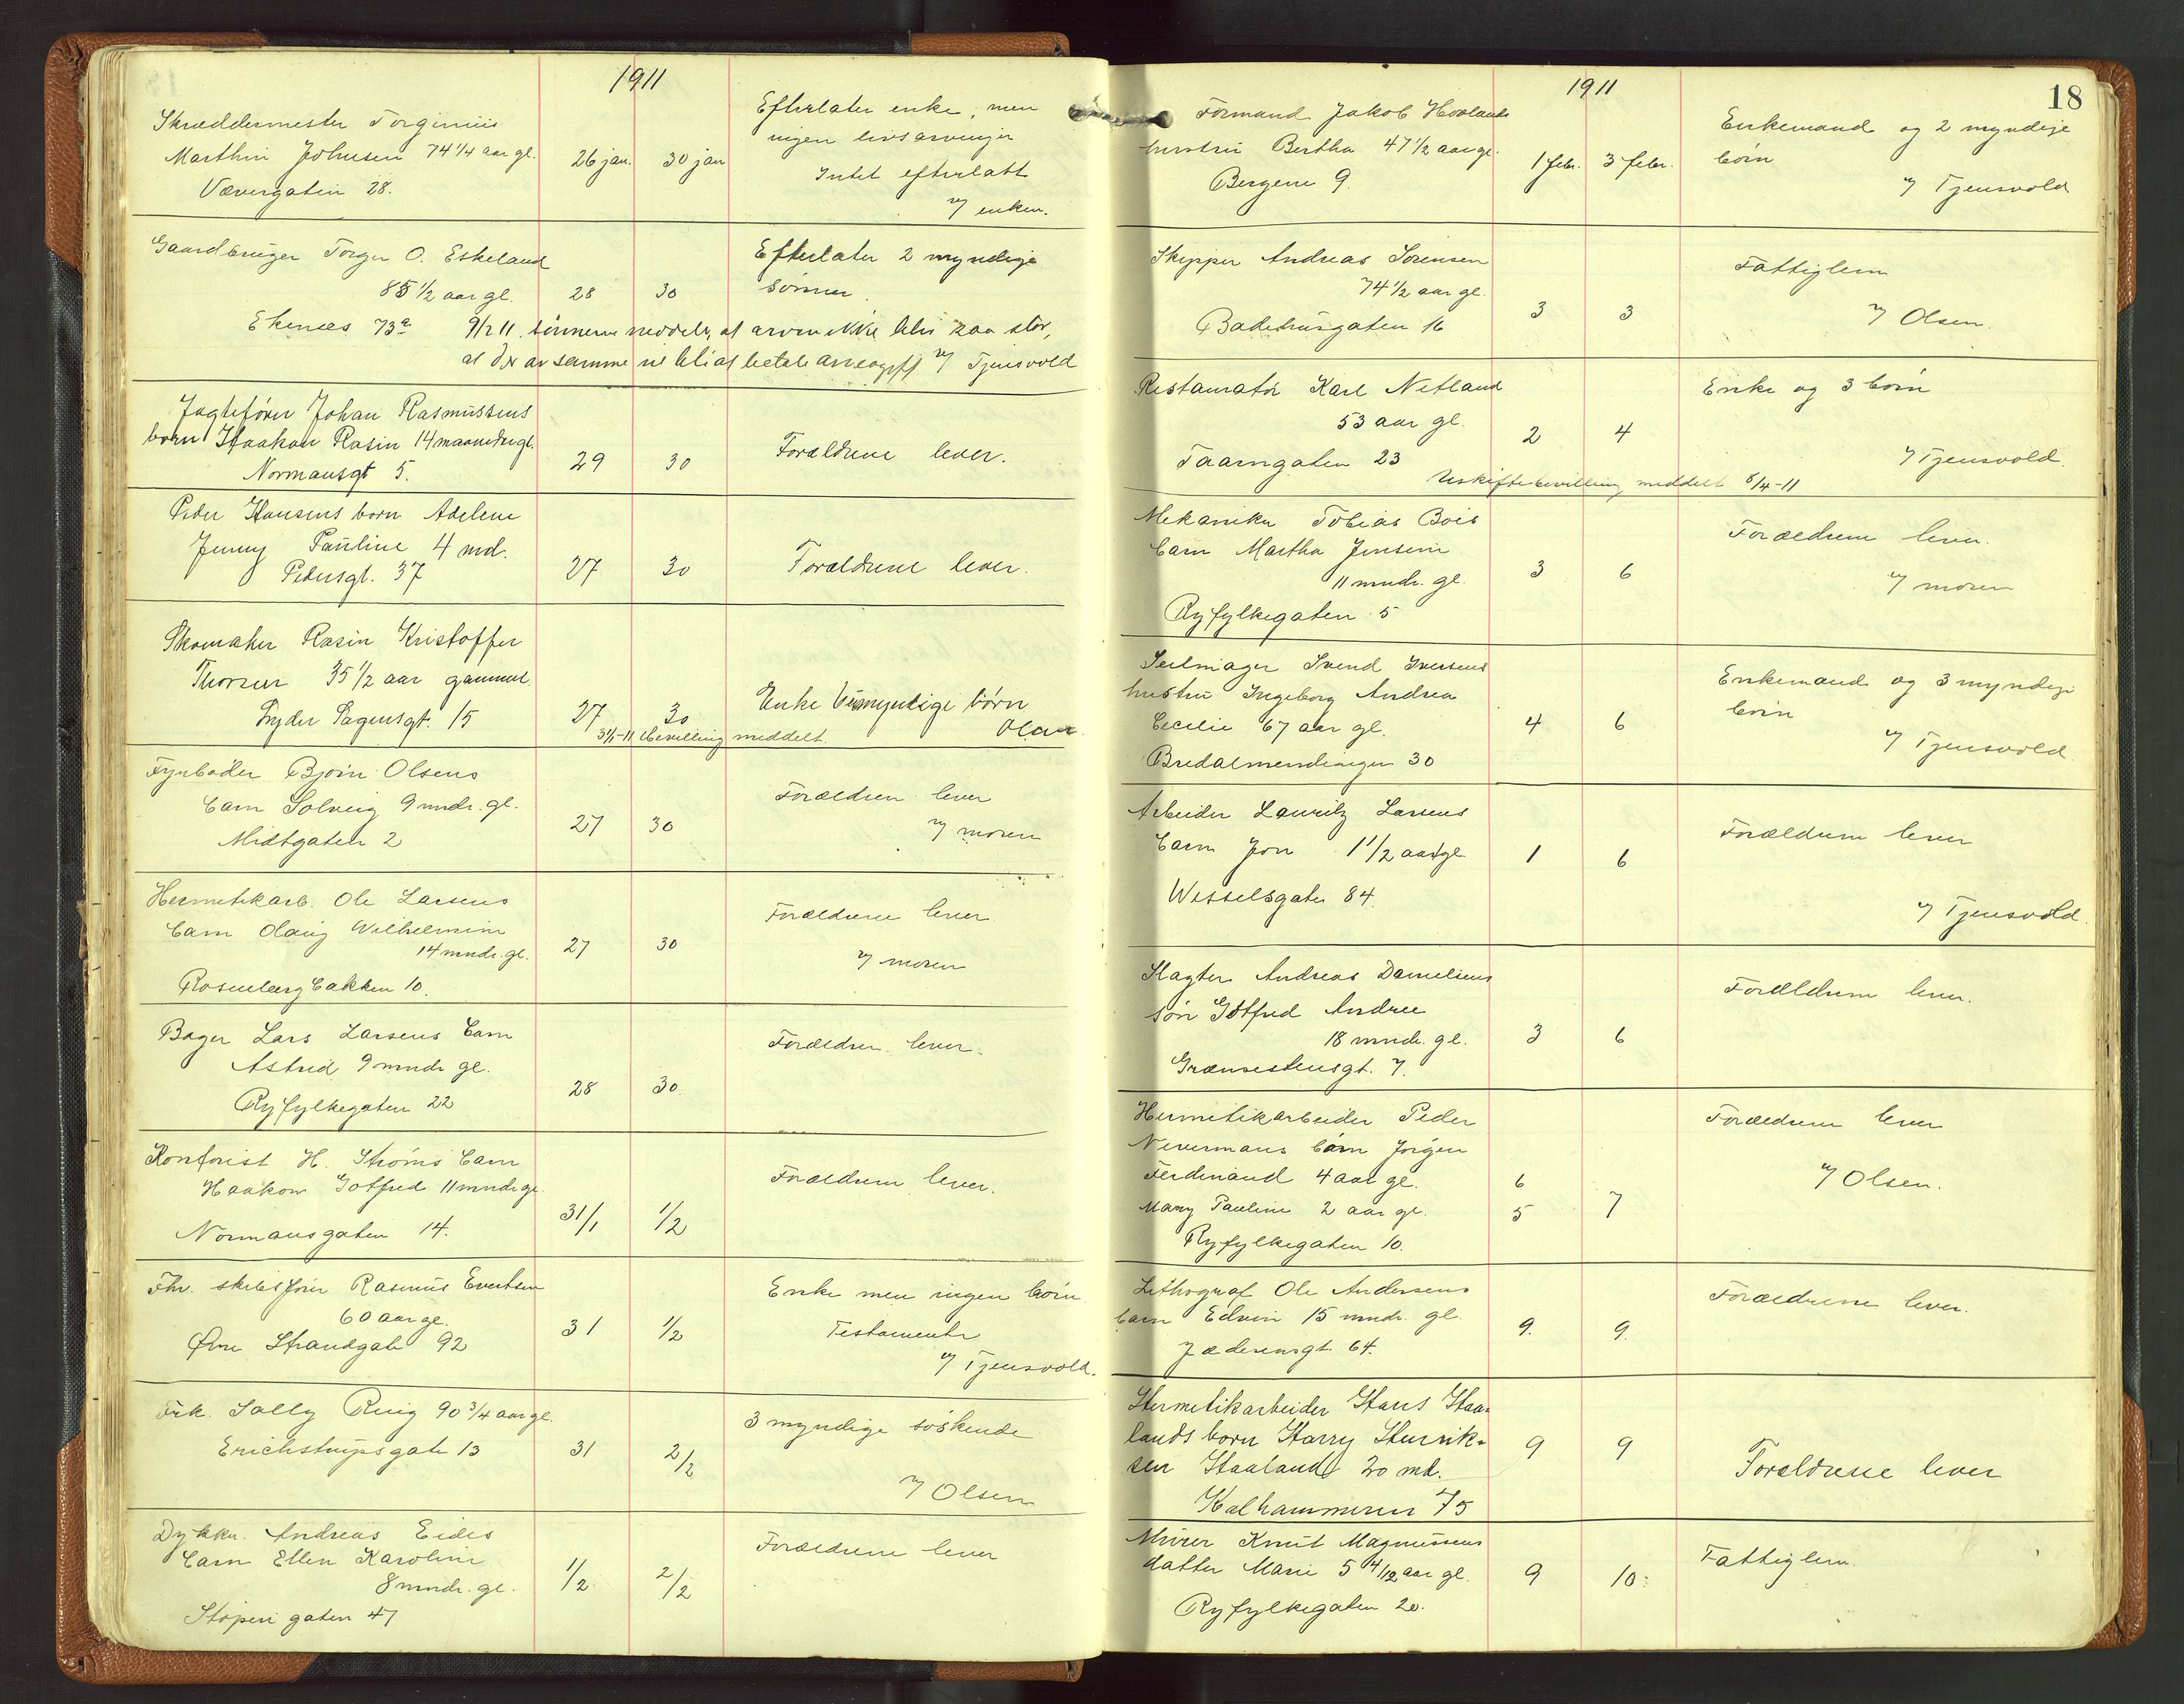 1911
Skræddermester Torginius
Marthin Johnsen 74 1/4 aar gl.
Vævergaten 28.
26 jan. 30 jan
Efterlater enke, men
ingen livsarvinger
Intet efterlatt
v/ enken.
Gaardbruger Torger O. Eskeland
85 1/2 aar gl.
28 30
Efterlater 2 myndige
sønner.
Ekenæs 73a 9/2 11. sønnerne meddeler, at arven ikke blir saa stor,
at der av samme vil bli at betale arveavgift v/ Tjensvold
Jagtefører Johan Rasmussens
barn Haakon Rasin 14 maaneder gl.
Normansgt 5.
29 30
Forældrene lever.
Peder Hansens barn Adelene
Jenny Pauline 4 md.
Pedersgt. 37
27 30
Forældrene lever.
Skomaker Rasin Kristoffer
Thorsen 35 1/2 aar gammel
Lyder Sagensgt. 15
27 30
Enke umyndige børn
Olsen
31/1-11 Bevilling meddelt.
Fyrbøder Bjørn Olsens
barn Solveig 9 mndr. gl.
Midtgaten 2
27 30
Forældren lever
v/ moren
Hermetikarb. Ole Larsens
barn Olaug Wilhelmine
14 mndr. gl.
Rosenbergbakken 10.
27 30
Forældrene lever
v/ moren
Bager Lars Larsens barn
Astrid 9 mndr gl.
Ryfylkegaten 22
28 30.
Forældren lever.
Kontorist H. Strøms barn
Haakon Gotfred 11 mndr gl.
Normansgaten 14.
31/1 1/2
Forældrene lever.
Fhv. skibsfører Rasmus Evertsen
60 aar gl.
Øvre Strandgate 92
31 1/2
Enke men ingen børn
Testamente
v/ Tjensvold.
Frk. Sally Ring 90 3/4 aar gl.
Erichstrupsgate 13
31 2/2
3 myndige søskende
v/ Olsen
Dykker Andreas Eides
barn Ellen Karoline
8 mndr. gl.
Støperigaten 47
1/2 2/2
Forældrene lever
18
1911
Formand Jakob Hovlands
hustru Bertha 47 1/2 aar gl.
Bergene 9.
1 febr. 3 febr.
Enkemand og 2 myndige
børn
v/ Tjensvold
Skipper Andreas Sørensen
74 1/2 aar gl.
Badehusgaten 16
3 3
Fattiglem
v/ Olsen.
Restauratør Karl Netland
53 aar gl.
Taarngaten 23
2 4
Enke og 3 børn
v/ Tjensvold.
Uskiftebevilling meddelt 8/4-11
Mekaniker Tobias Bois
barn Martha Jensine
11 mndr. gl.
Ryfylkegaten 5
3 6
Forældrene lever.
v/ moren
Seilmager Svend Iversens
hustru Ingeborg Andrea
Cecilie 67 aar gl.
Bredalmendingen 30
4 6
Enkemand og 3 myndige
børn
v/ Tjensvold
Arbeider Lauritz Larsens
barn Jon 1 1/2 aar gl
Wesselsgaten 84.
1 6
Forældrene lever
v/ Tjensvold.
Slagter Andreas Danielsens
søn Gotfred Andree
18 mndr. gl.
Grænsestensgt. 7.
3 6
Forældrene lever.
Hermetikarbeider Peder
Nevermans børn Jørgen
Ferdinand 4 aar gl.
Mary Pauline 2 aar gl.
Ryfylkegaten 10.
6
5 7
Forældrene lever
v/ Olsen.
Lithograf Ole Andersens
barn Edvin 15 mndr. gl.
Jæderensgt. 64.
9. 9.
Forældrene lever.
Hermetikarbeider Hans Haa-
lands barn Harry Henrik-
sen Haaland 20 md.
Kalhammeren 75
9 9
Forældrene lever
Murer Knut Magnussens
datter Marie 5 4/12 aar gl.
Ryfylkegaten 20.
9 10.
Fattiglem.